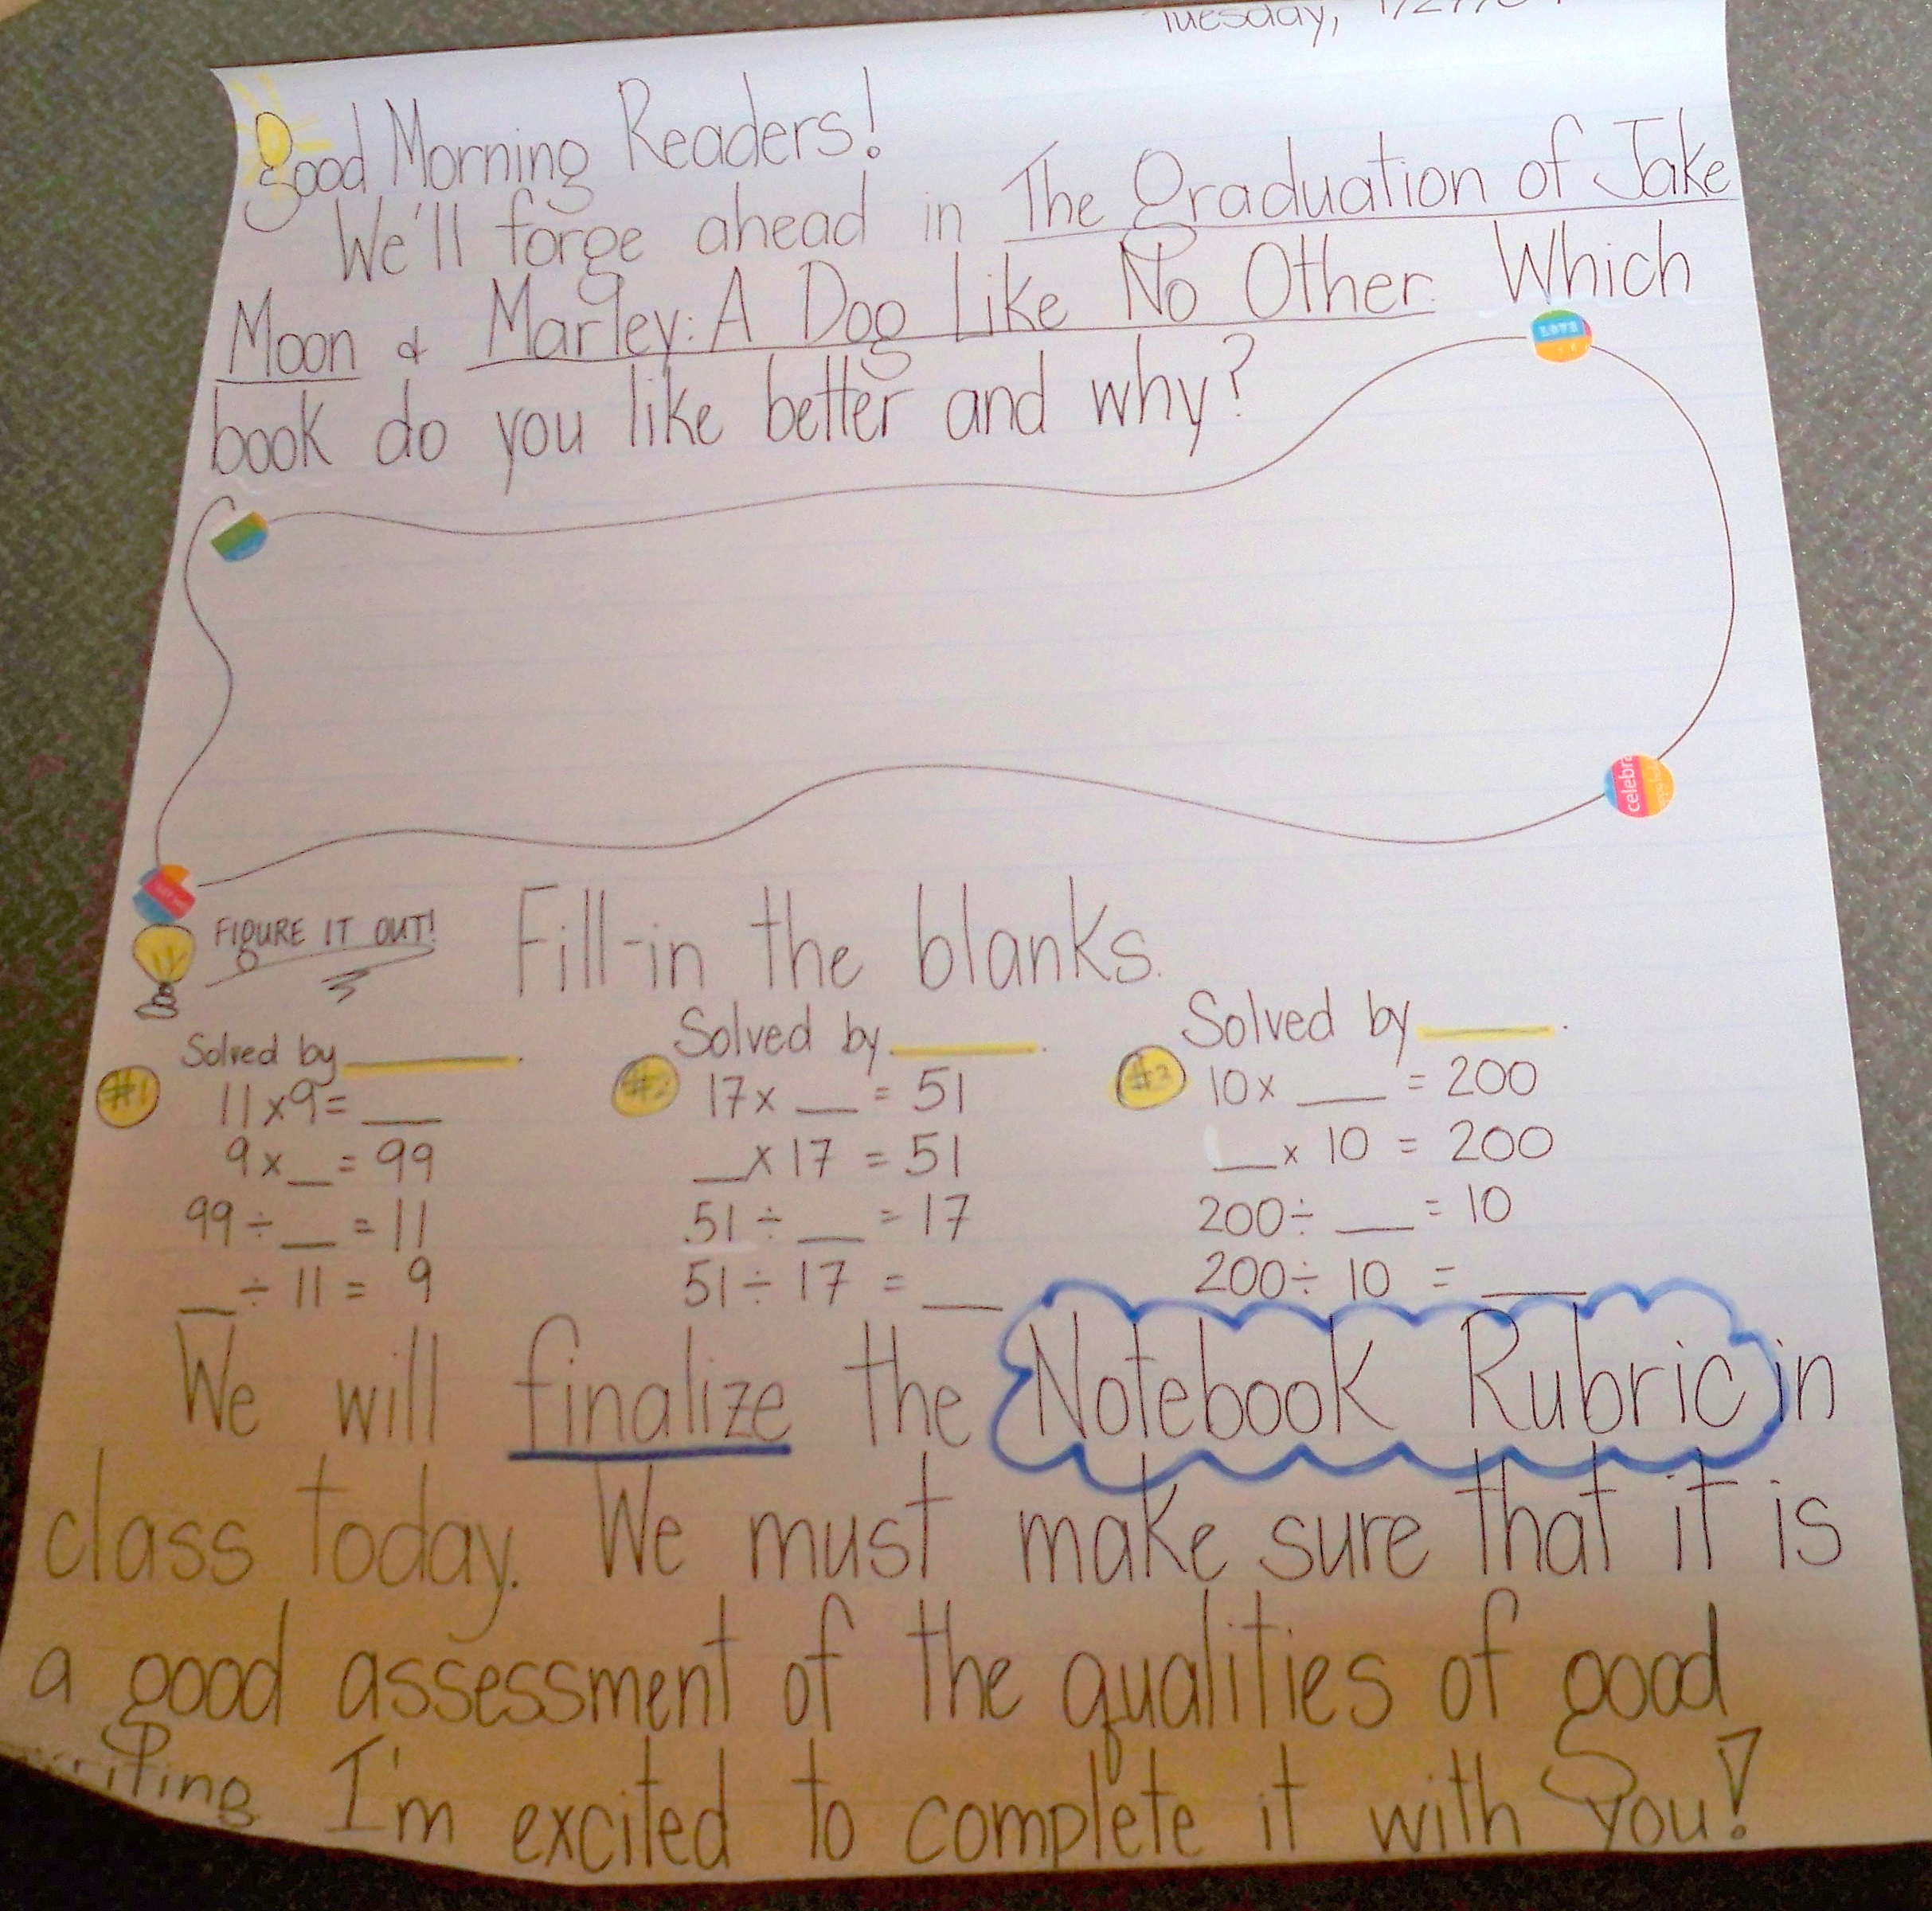 Tuesday,
Good Morning Readers!
We'll forge ahead in The Graduation of Jake
Moon & Marley: A Dog Like No Other. Which
book do you like better and why?
LOVE
celebra
FIGURE IT OUT! Fill-in the blanks.
Solved by ____. Solved by ____. Solved by ____.
#1 11 x 9 = __ #2 17 x __ = 51 #3 10 x __ = 200
9 x __ = 99 __ x 17 = 51 __ x 10 = 200
99 ÷ __ = 11 51 ÷ __ = 17 200 ÷ __ = 10
__ ÷ 11 = 9 51 ÷ 17 = __ 200 ÷ 10 = __
We will finalize the Notebook Rubric in
class today. We must make sure that it is
a good assessment of the qualities of good
writing. I'm excited to complete it with you!